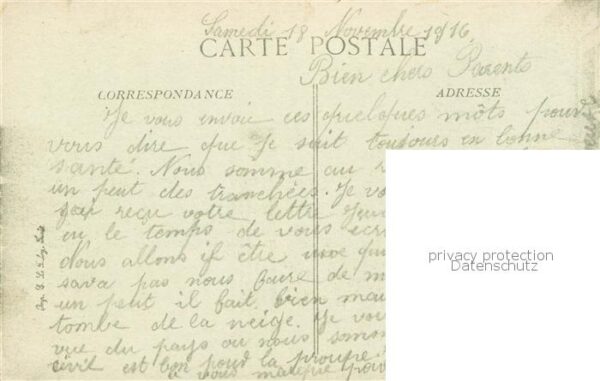 Samedi 18 Novembre 1916
CARTE POSTALE
Bien chers Parents
CORRESPONDANCE
ADRESSE
Je vous envoie ces quelques môts pour
vous dire que Je suit toujours en bonne
santé. Nous somme au
un peut des tranchées. Je vo
reçu votre lettre
eu le temps de vous ecri
Nous allons
sava pas nous faire de m
un peut il fait bien mau
tombe de la neige. Je vou
vue du pays ou nous somm
civil est bon pour la troupe
vous marque pour
privacy protection
Datenschutz